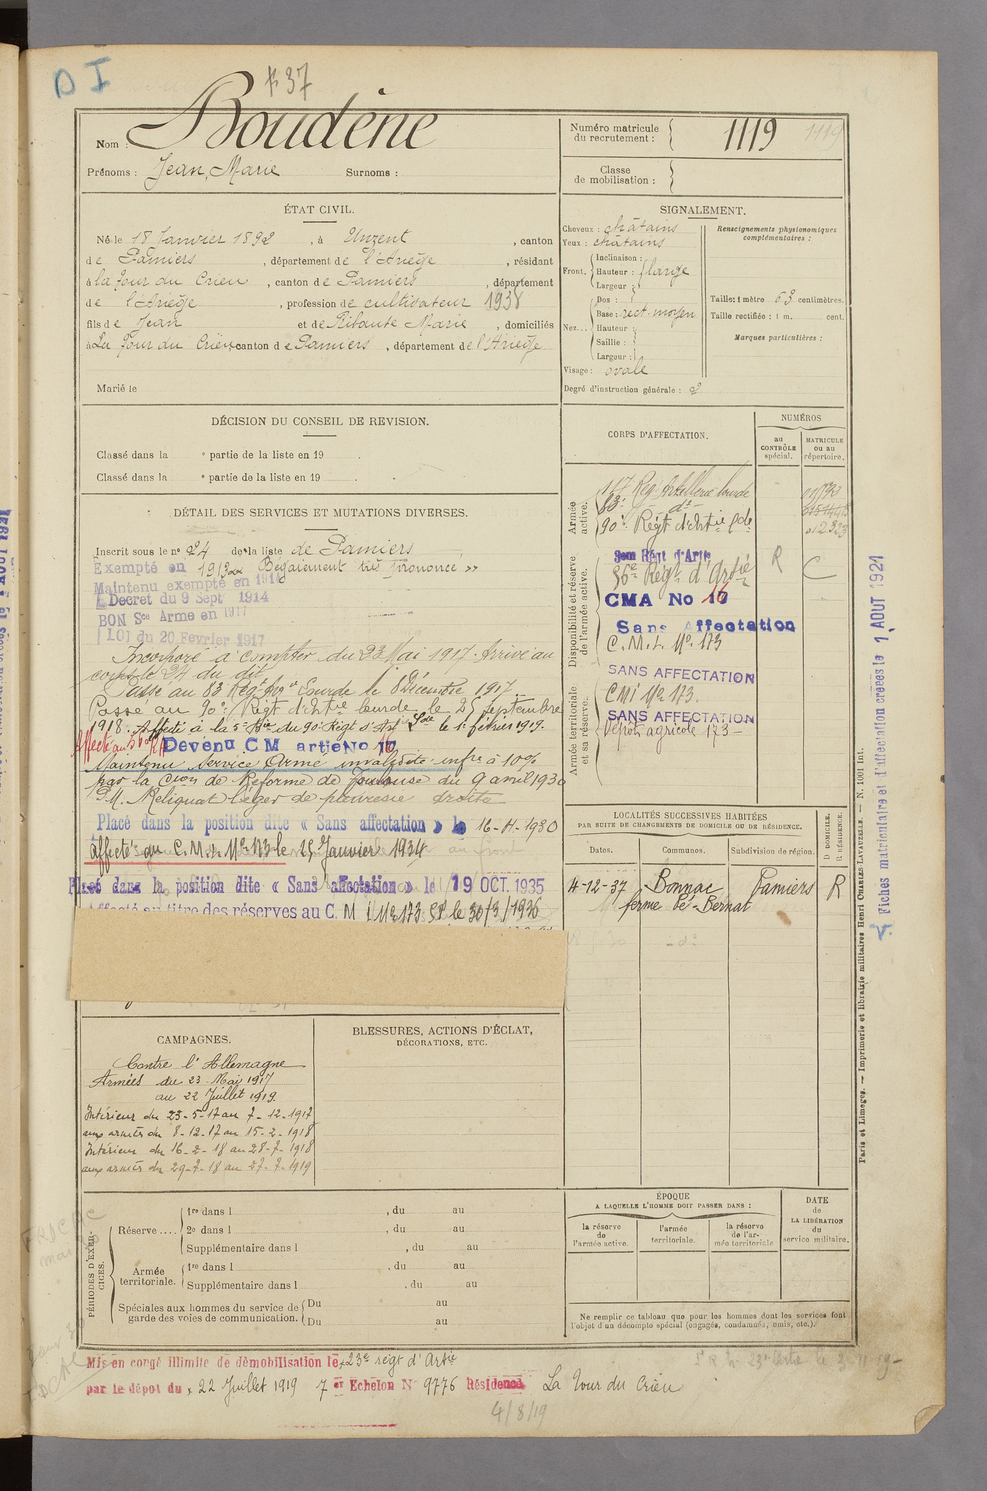 D I
37
Nom : Boudène
Prénoms : Jean, Marie Surnoms :
Numéro matricule du recrutement : 1119 1119
Classe de mobilisation :
ÉTAT CIVIL.
Né le 18 Janvier 1892, à Unzent, canton
de Pamiers, département de l'Ariège, résidant
à la Tour du Crieu, canton de Pamiers, département
de l'Ariège, profession de cultivateur 1938
fils de Jean et de Ribaute Marie, domiciliés
à La Tour du Crieu canton de Pamiers, département de l'Ariège
Marié le
SIGNALEMENT.
Cheveux : châtains
Yeux : châtains
Front. Inclinaison :
Hauteur : large
Largeur :
Nez. Dos :
Base : rect. moyen
Hauteur :
Saillie :
Largeur :
Visage : ovale
Degré d'instruction générale : 2
Renseignements physionomiques complémentaires :
Taille : 1 mètre 63 centimètres.
Taille rectifiée : 1 m. cent.
Marques particulières :
DÉCISION DU CONSEIL DE REVISION.
Classé dans la e partie de la liste en 19 .
Classé dans la e partie de la liste en 19 .
DÉTAIL DES SERVICES ET MUTATIONS DIVERSES.
Inscrit sous le n° 24 de la liste de Pamiers
Exempté en 1913 « Bégaiement très prononcé »
Maintenu exempté en 1914
Décret du 9 Sept 1914
BON Sce Armé en 1917
LOI du 20 Fevrier 1917
Incorporé à compter du 23 Mai 1917. Arrivé au
corps le 24 du dit.
Passé au 83 Rég. Lourde le 8 Décembre 1917.
Passé au 90e Régt d'Artie lourde le 25 septembre
1918. Affecté à la 5e Bie du 90 Régt d'Art Lde le 1er février 1919.
Devenu C M artie No 16
Maintenu Service Armé invalidité infre à 10%
par la Cion de Réforme de Toulouse du 9 avril 1930
P.M. Reliquat léger de pleurésie droite
Placé dans la position dite « Sans affectation » le 16-4-1930
Affecté au C.M.I. No 173 le 15 Janvier 1934
Placé dans la position dite « Sans affectation » le 19 OCT. 1935
Affecté au titre des réserves au C. M I No 173 SP le 30/3/1936
CORPS D'AFFECTATION.
NUMÉROS
au CONTRÔLE spécial.
MATRICULE ou au répertoire.
Armée active.
117 Rég Artillerie lourde
83e do
90e Régt d'Artie lde
Disponibilité et réserve de l'armée active.
56e Régt d'Artie R C
CMA No 16
Sans Affectation
C.M.I. No 173
SANS AFFECTATION
Armée territoriale et sa réserve.
CMI No 173.
SANS AFFECTATION
Dépôt agricole 173
LOCALITÉS SUCCESSIVES HABITÉES
PAR SUITE DE CHANGEMENTS DE DOMICILE OU DE RÉSIDENCE.
Dates. Communes. Subdivision de région. D DOMICILE. R RÉSIDENCE.
4-12-37 Bonnac Pamiers R
ferme Bernat
Fiches matriculaire et d'affectation créées le 1 AOUT 1921
Paris et Limoges. — Imprimerie et librairie militaires Henri CHARLES-LAVAUZELLE. — N. 1001 Int.
CAMPAGNES.
Contre l'Allemagne
Armées du 23 Mai 1917
au 22 Juillet 1919.
Intérieur du 23-5-17 au 7-12-1917
aux armées du 8-12-17 au 15-2-1918
Intérieur du 16-2-18 au 28-7-1918
aux armées du 29-7-18 au 27-7-1919
BLESSURES, ACTIONS D'ÉCLAT,
DÉCORATIONS, ETC.
PÉRIODES D'EXERCICES.
Réserve.... 1re dans l , du au
2e dans l , du au
Supplémentaire dans l , du au
Armée territoriale. 1re dans l , du au
Supplémentaire dans l , du au
Spéciales aux hommes du service de garde des voies de communication. Du au
Du au
ÉPOQUE
A LAQUELLE L'HOMME DOIT PASSER DANS :
la réserve de l'armée active.
l'armée territoriale.
la réserve de l'armée territoriale
DATE de LA LIBÉRATION du service militaire.
Ne remplir ce tableau que pour les hommes dont les services font l'objet d'un décompte spécial (engagés, condamnés, omis, etc.).
Mis en congé illimité de démobilisation le 23e régt d'Artie
par le dépôt du 22 Juillet 1919 7 er Echelon N° 9776 Résidence La Tour du Crieu
4/8/19